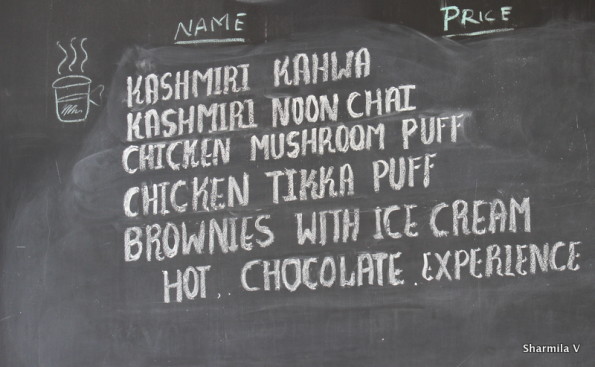 NAME PRICE
KASHMIRI KAHWA
KASHMIRI NOON CHAI
CHICKEN MUSHROOM PUFF
CHICKEN TIKKA PUFF
BROWNIES WITH ICE CREAM
HOT.. CHOCOLATE .EXPERIENCE
Sharmila V